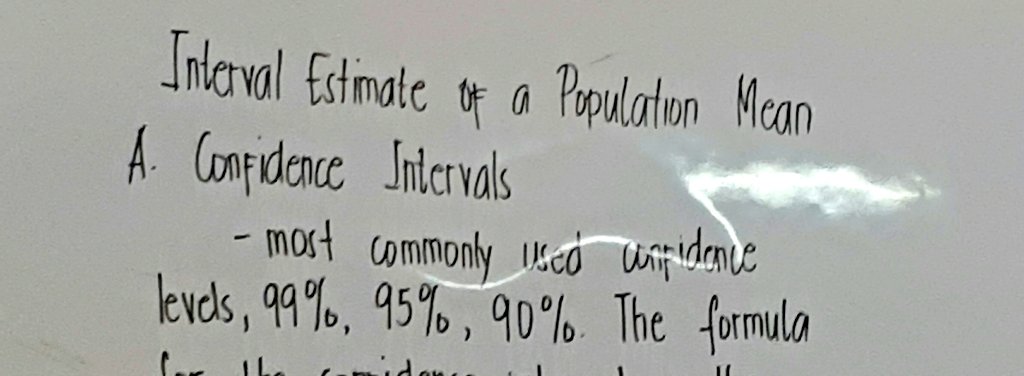 Interval Estimate of a Population Mean
A. Confidence Intervals
- most commonly used confidence
levels, 99%, 95%, 90%. The formula
for the confidence